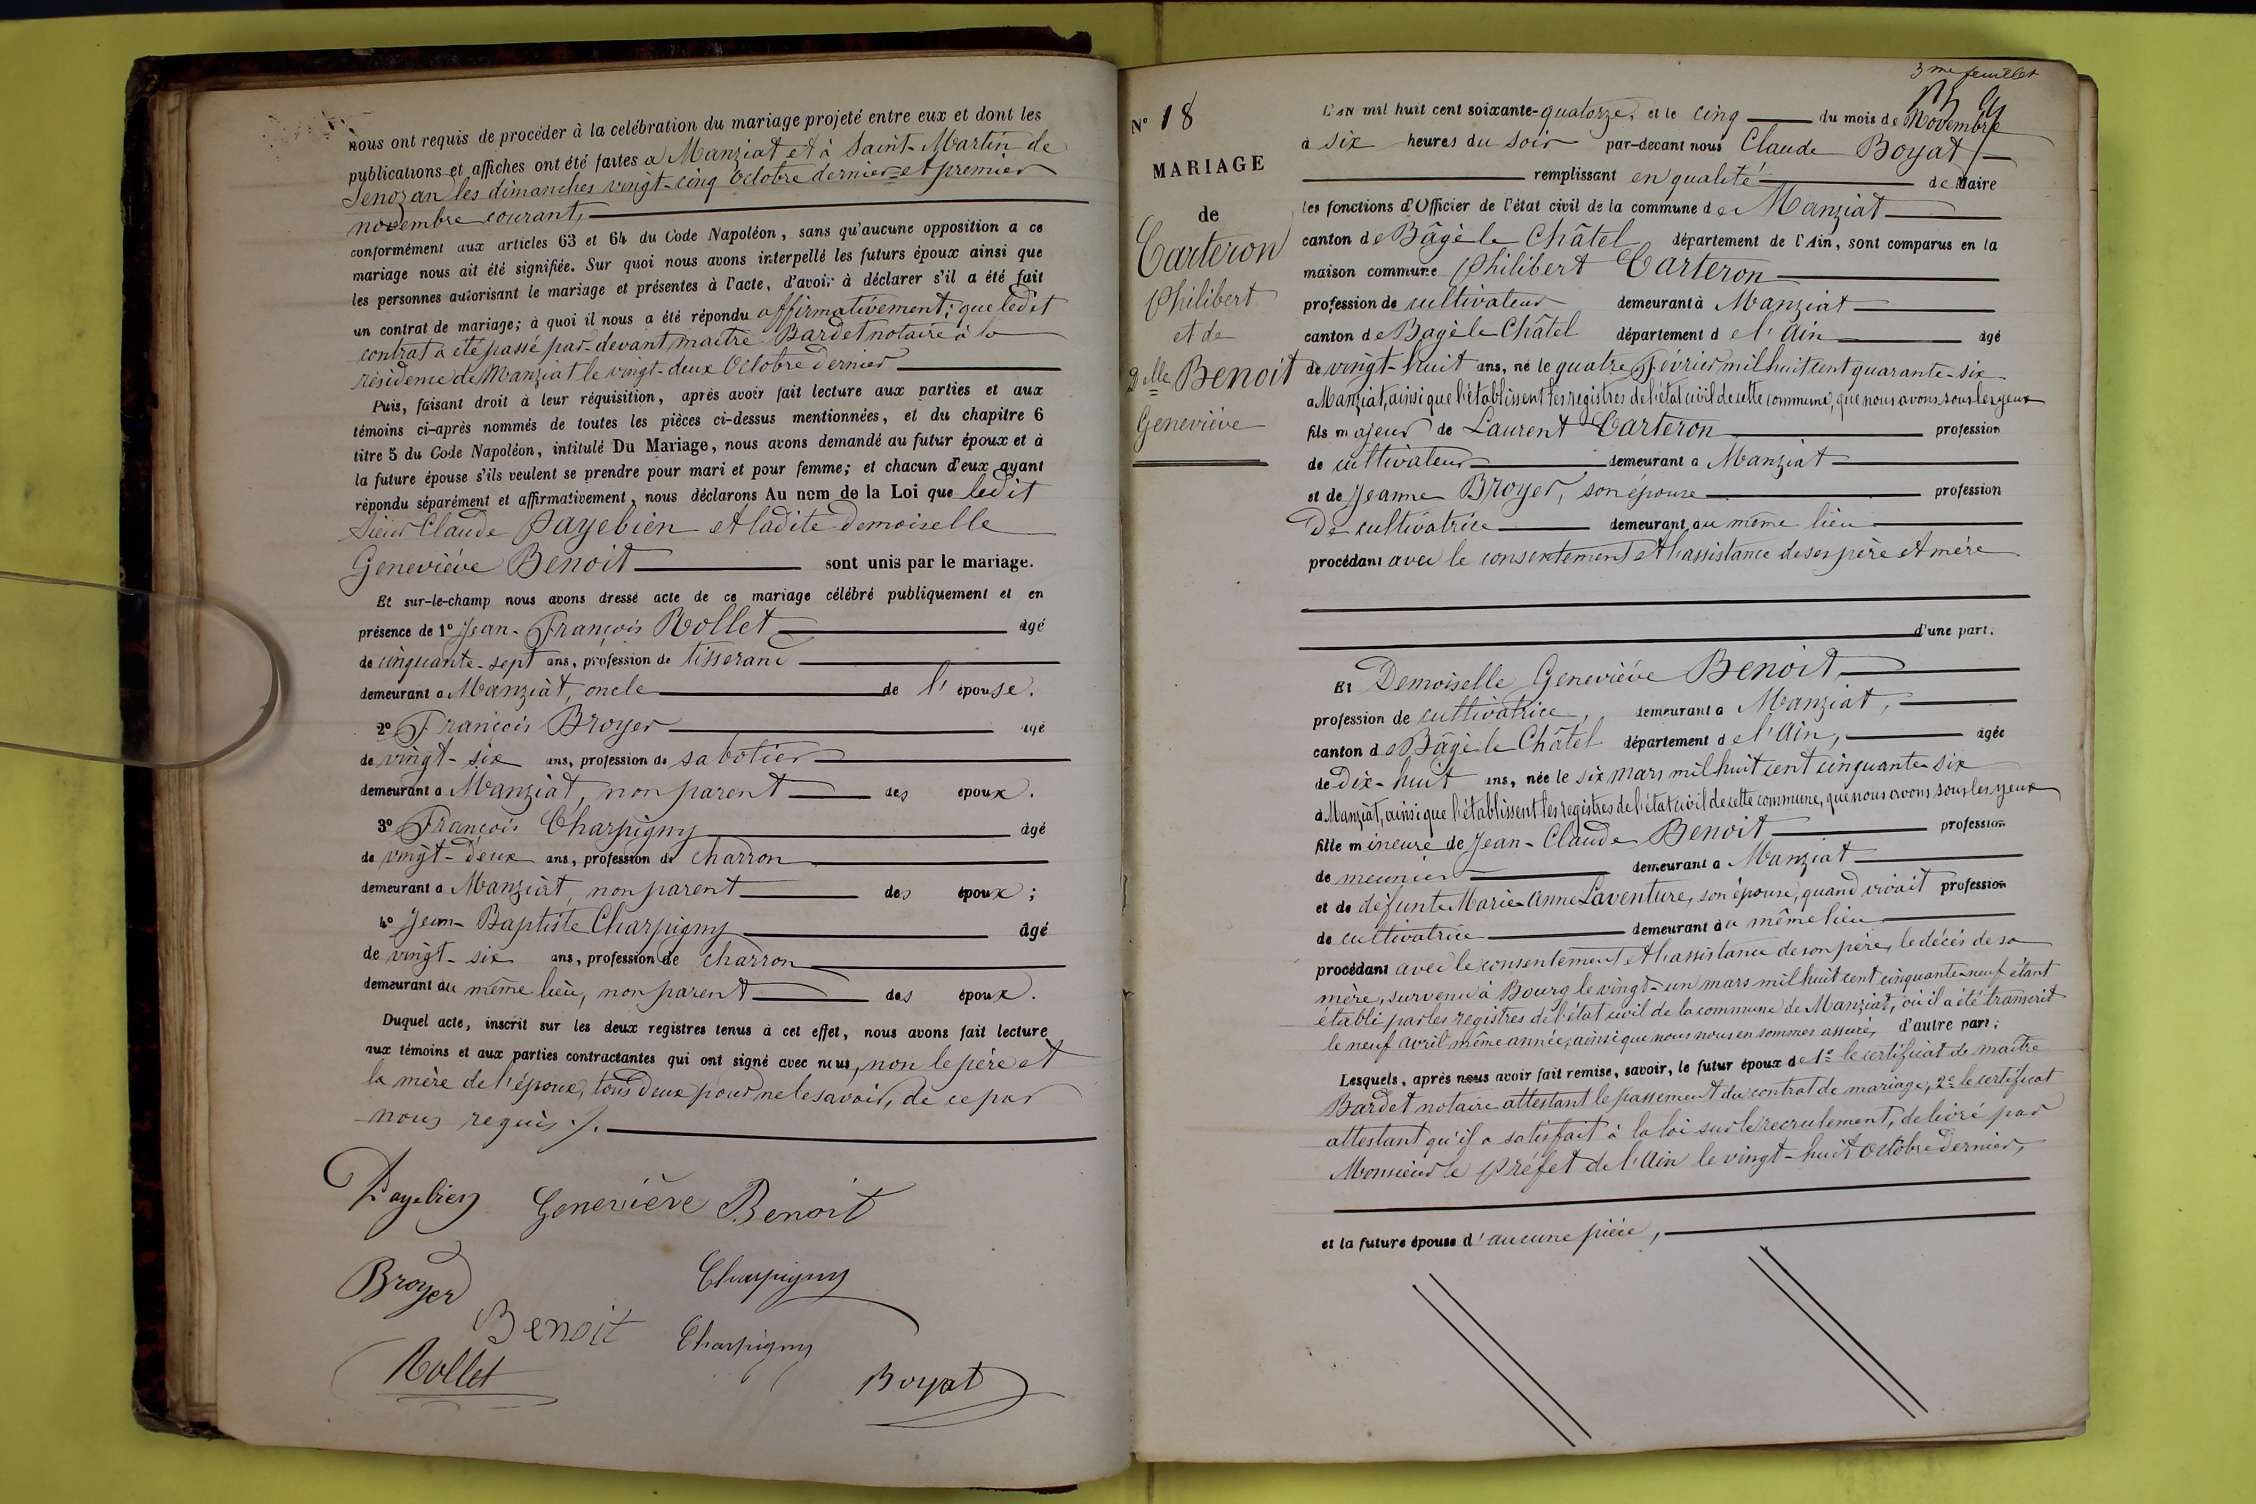 nous ont requis de procéder à la celébration du mariage projeté entre eux et dont les
publications et affiches ont été faites a Manziat et à Saint-Martin de
Senozan les dimanches vingt-cinq Octobre dernier et premier
novembre courant,
conformément aux articles 63 et 64 du Code Napoléon, sans qu'aucune opposition a ce
mariage nous ait été signifiée. Sur quoi nous avons interpellé les futurs époux ainsi que
les personnes autorisant le mariage et présentes à l'acte, d'avoir à déclarer s'il a été fait
un contrat de mariage; à quoi il nous a été répondu affirmativement; que ledit
contrat a été passé par-devant maître Bardet notaire à la
résidence de Manziat le vingt-deux Octobre dernier
Puis, faisant droit à leur réquisition, après avoir fait lecture aux parties et aux
témoins ci-après nommés de toutes les pièces ci-dessus mentionnées, et du chapitre 6
titre 5 du Code Napoléon, intitulé Du Mariage, nous avons demandé au futur époux et à
la future épouse s'ils veulent se prendre pour mari et pour femme; et chacun d'eux ayant
répondu séparément et affirmativement, nous déclarons Au nom de la Loi que ledit
Sieur Claude Payebien et ladite demoiselle
Geneviève Benoit sont unis par le mariage.
Et sur-le-champ nous avons dressé acte de ce mariage célébré publiquement et en
présence de 1º Jean-François Rollet âgé
de cinquante-sept ans, profession de tisserand
demeurant a Manziat, oncle de l'épouse.
2º François Broyer âgé
de vingt-six ans, profession de sabotier
demeurant a Manziat, non parent des époux.
3º François Charpigny âgé
de vingt-deux ans, profession de charron
demeurant a Manziat, non parent des époux;
4º Jean-Baptiste Charpigny âgé
de vingt-six ans, profession de charron
demeurant au même lieu, non parent des époux.
Duquel acte, inscrit sur les deux registres tenus à cet effet, nous avons fait lecture
aux témoins et aux parties contractantes qui ont signé avec nous, non le père et
la mère de l'époux, tous deux pour ne le savoir, de ce par
nous requis ./.
Payebien Geneviève Benoit
Broyer Charpigny
Benoit Charpigny
Rollet Boyat
3me feuillet
Nº 18
MARIAGE
de
Carteron
Philibert
et de
Delle Benoit
Geneviève
L'AN mil huit cent soixante-quatorze, et le cinq du mois de Novembre
à six heures du soir par-devant nous Claude Boyat
remplissant en qualité de Maire
les fonctions d'Officier de l'état civil de la commune de Manziat
canton de Bâgé le Châtel département de l'Ain, sont comparus en la
maison commune Philibert Carteron
profession de cultivateur demeurant à Manziat
canton de Bagé le Châtel département de l'Ain âgé
de vingt-huit ans, né le quatre Février mil huit cent quarante-six
a Manziat, ainsi que l'établissent les registres de l'état civil de cette commune, que nous avons sous les yeux
fils majeur de Laurent Carteron profession
de cultivateur demeurant a Manziat
et de Jeanne Broyer, son épouse profession
De cultivatrice demeurant au même lieu
procédant avec le consentement et l'assistance de ses père et mère
d'une part.
Et Demoiselle Geneviève Benoit,
profession de cultivatrice, demeurant a Manziat,
canton de Bâgé le Châtel département de l'Ain, âgée
de Dix-huit ans, née le six mars mil huit cent cinquante-six
à Manziat, ainsi que l'établissent les registres de l'état civil de cette commune, que nous avons sous les yeux
fille mineure de Jean-Claude Benoit profession
de meunier demeurant a Manziat
et de défunte Marie-Anne Laventure, son épouse, quand vivait profession
de cultivatrice demeurant au même lieu
procédant avec le consentement et l'assistance de son père, le décés de sa
mère, survenu à Bourg le vingt-un mars mil huit cent cinquante-neuf étant
établi par les registres de l'état civil de la commune de Manziat, où il a été transcrit
le neuf avril même année, ainsi que nous nous en sommes assuré, d'autre part;
Lesquels, après nous avoir fait remise, savoir, le futur époux de 1º le certificat de maître
Bardet notaire attestant le passement du contrat de mariage, 2º le certificat
attestant qu'il a satisfait à la loi sur le recrulement, délivré par
Monsieur le Préfet de l'Ain le vingt-huit Octobre dernier,
et la future épouse d'aucune pièce,